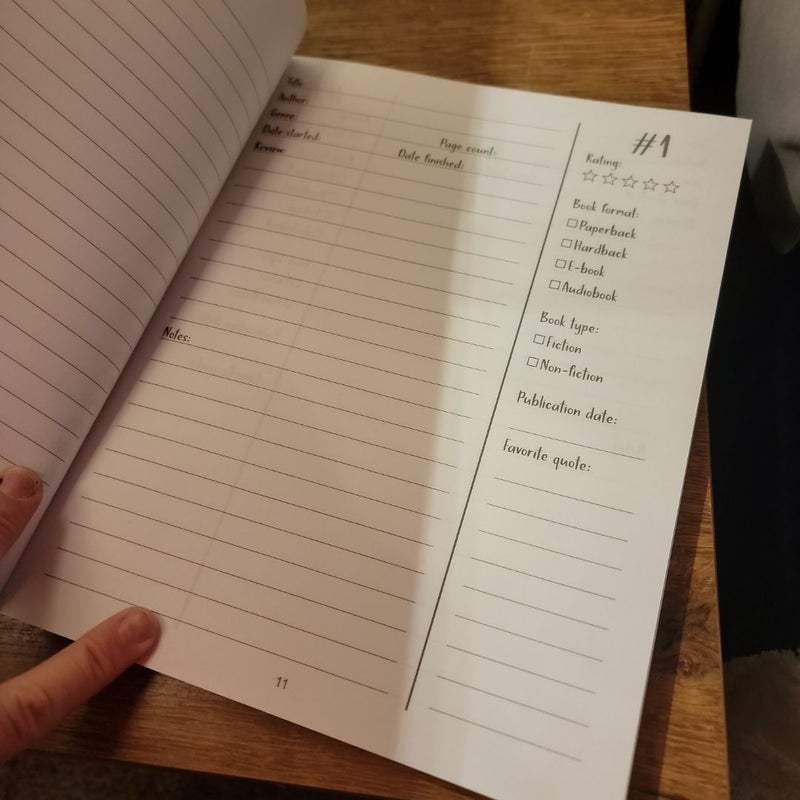 Title:
Author:
Genre:
Page count:
Date started:
Date finished:
Review:
Notes:
11
#1
Rating:
Book format:
Paperback
Hardback
E-book
Audiobook
Book type:
Fiction
Non-fiction
Publication date:
Favorite quote: